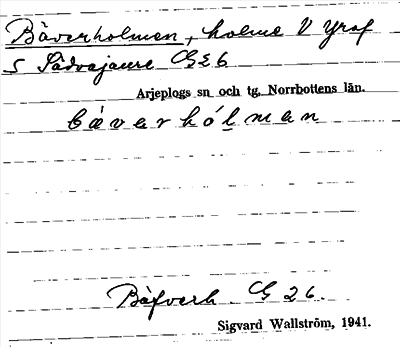 Bäverholmen, holme V Yraf
S Sädvajaure GÄ6
Arjeplogs sn och tg, Norrbottens län.
bä́ verhólman
Bäfverh. G 26.
Sigvard Wallström, 1941.